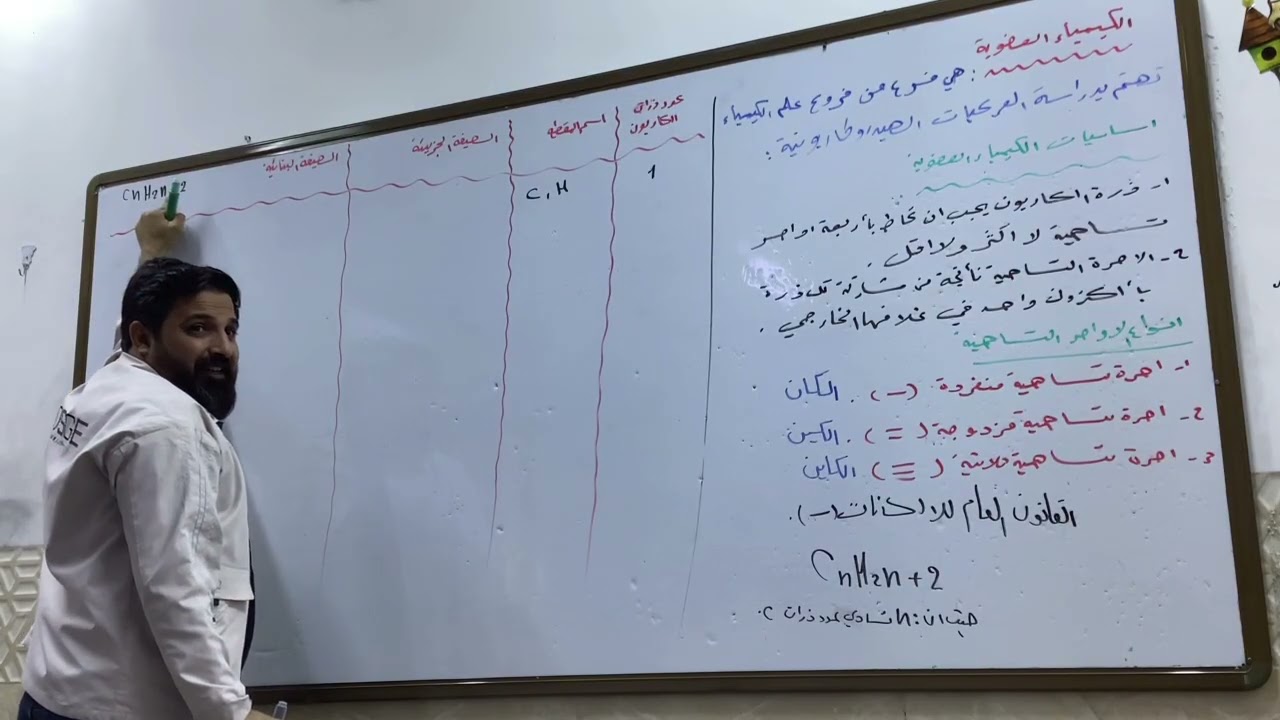 الكيمياء العضوية
: هي فرع من فروع علم الكيمياء
تهتم بدراسة المركبات الهيدروكاربونية .
اساسيات الكيمياء العضوية
1- ذرة الكاربون يجب ان تحاط بأربعة اواصر
تساهمية لا اكثر ولا اقل .
2- الاصرة التساهمية ناتجة من مشاركة كل ذرة
بألكترون واحد في غلافها الخارجي .
انواع الاواصر التساهمية
1- اصرة تساهمية منفردة (-) . الكان
2- اصرة تساهمية مزدوجة (=) . الكين
3- اصرة تساهمية ثلاثية (≡) الكاين
القانون العام للالكانات (-) .
CnH2n+2
حيث ان : n تساوي عدد ذرات C .
عدد ذرات الكاربون
اسم المقطع
الصيغة الجزيئية
الصيغة البنائية
1
C, H
CnH2n+2